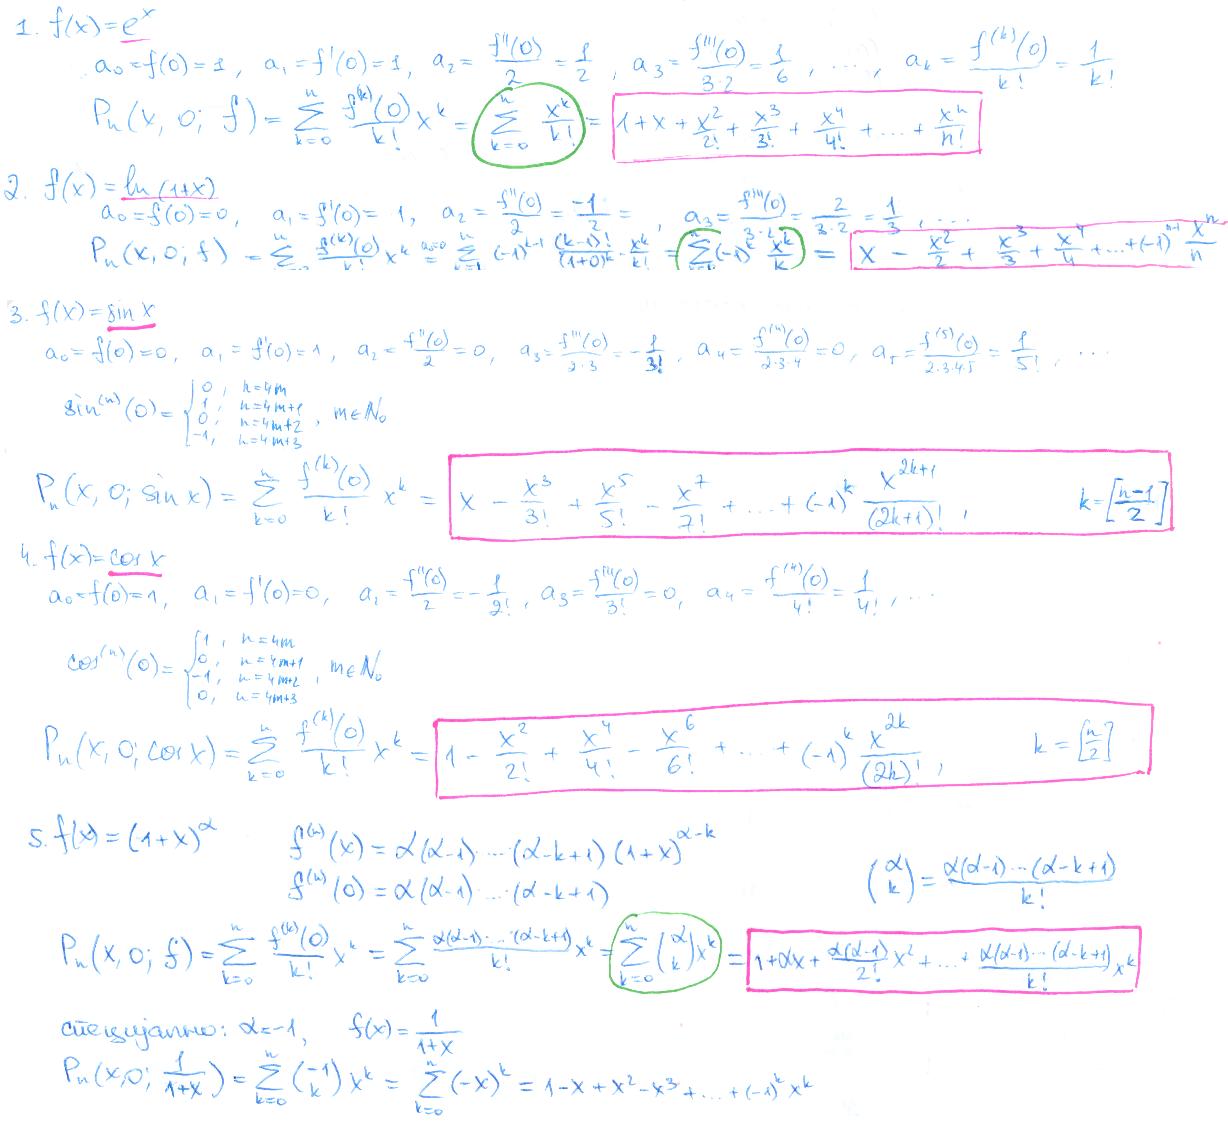 1. f(x)=e^x
a₀=f(0)=1, a₁=f'(0)=1, a₂=f''(0)/2=1/2, a₃=f'''(0)/3·2=1/6, ..., aₖ=f^(k)(0)/k!=1/k!
Pₙ(x, 0; f)=∑_{k=0}^{n} f^(k)(0)/k! x^k=∑_{k=0}^{n} x^k/k!=1+x+x²/2!+x³/3!+x⁴/4!+...+x^n/n!
2. f(x)=ln(1+x)
a₀=f(0)=0, a₁=f'(0)=1, a₂=f''(0)/2=-1/2=, a₃=f'''(0)/3·2=2/3·2=1/3, ...
Pₙ(x,0; f)=∑^{n} f^(k)(0)/k! x^k =^{a₀=0} ∑^{n} (-1)^{k-1} (k-1)!/(1+0)^k · x^k/k! = ∑^{n} (-1)^k x^k/k = x - x²/2 + x³/3 + x⁴/4 +...+(-1)^{n-1} x^n/n
3. f(x)=sin x
a₀=f(0)=0, a₁=f'(0)=1, a₂=f''(0)/2=0, a₃=f'''(0)/2·3=-1/3!, a₄=f^(4)(0)/2·3·4=0, a₅=f^(5)(0)/2·3·4·5=1/5!, ...
sin^(n)(0)={0, n=4m
1, n=4m+1
0, n=4m+2
-1, n=4m+3
, m∈N₀
Pₙ(x, 0; sin x)=∑_{k=0}^{n} f^(k)(0)/k! x^k = x - x³/3! + x⁵/5! - x⁷/7! + ... + (-1)^k x^{2k+1}/(2k+1)!, k=[n-1/2]
4. f(x)=cos x
a₀=f(0)=1, a₁=f'(0)=0, a₂=f''(0)/2=-1/2!, a₃=f'''(0)/3!=0, a₄=f^(4)(0)/4!=1/4!, ...
cos^(n)(0)={1, n=4m
0, n=4m+1
-1, n=4m+2
0, n=4m+3
, m∈N₀
Pₙ(x, 0; cos x)=∑_{k=0}^{n} f^(k)(0)/k! x^k = 1 - x²/2! + x⁴/4! - x⁶/6! + ... + (-1)^k x^{2k}/(2k)!, k=[n/2]
5. f(x)=(1+x)^α f^(n)(x)=α(α-1)...(α-k+1)(1+x)^{α-k}
f^(n)(0)=α(α-1)...(α-k+1) (α k)=α(α-1)...(α-k+1)/k!
Pₙ(x,0; f)=∑_{k=0}^{n} f^(k)(0)/k! x^k=∑_{k=0}^{n} α(α-1)...(α-k+1)/k! x^k=∑_{k=0}^{n} (α k)x^k=1+αx+α(α-1)/2! x²+...+α(α-1)...(α-k+1)/k! x^k
специјално: α=-1, f(x)=1/1+x
Pₙ(x,0; 1/1+x)=∑_{k=0}^{n} (-1 k) x^k=∑_{k=0}^{n} (-x)^k=1-x+x²-x³+...+(-1)^k x^k